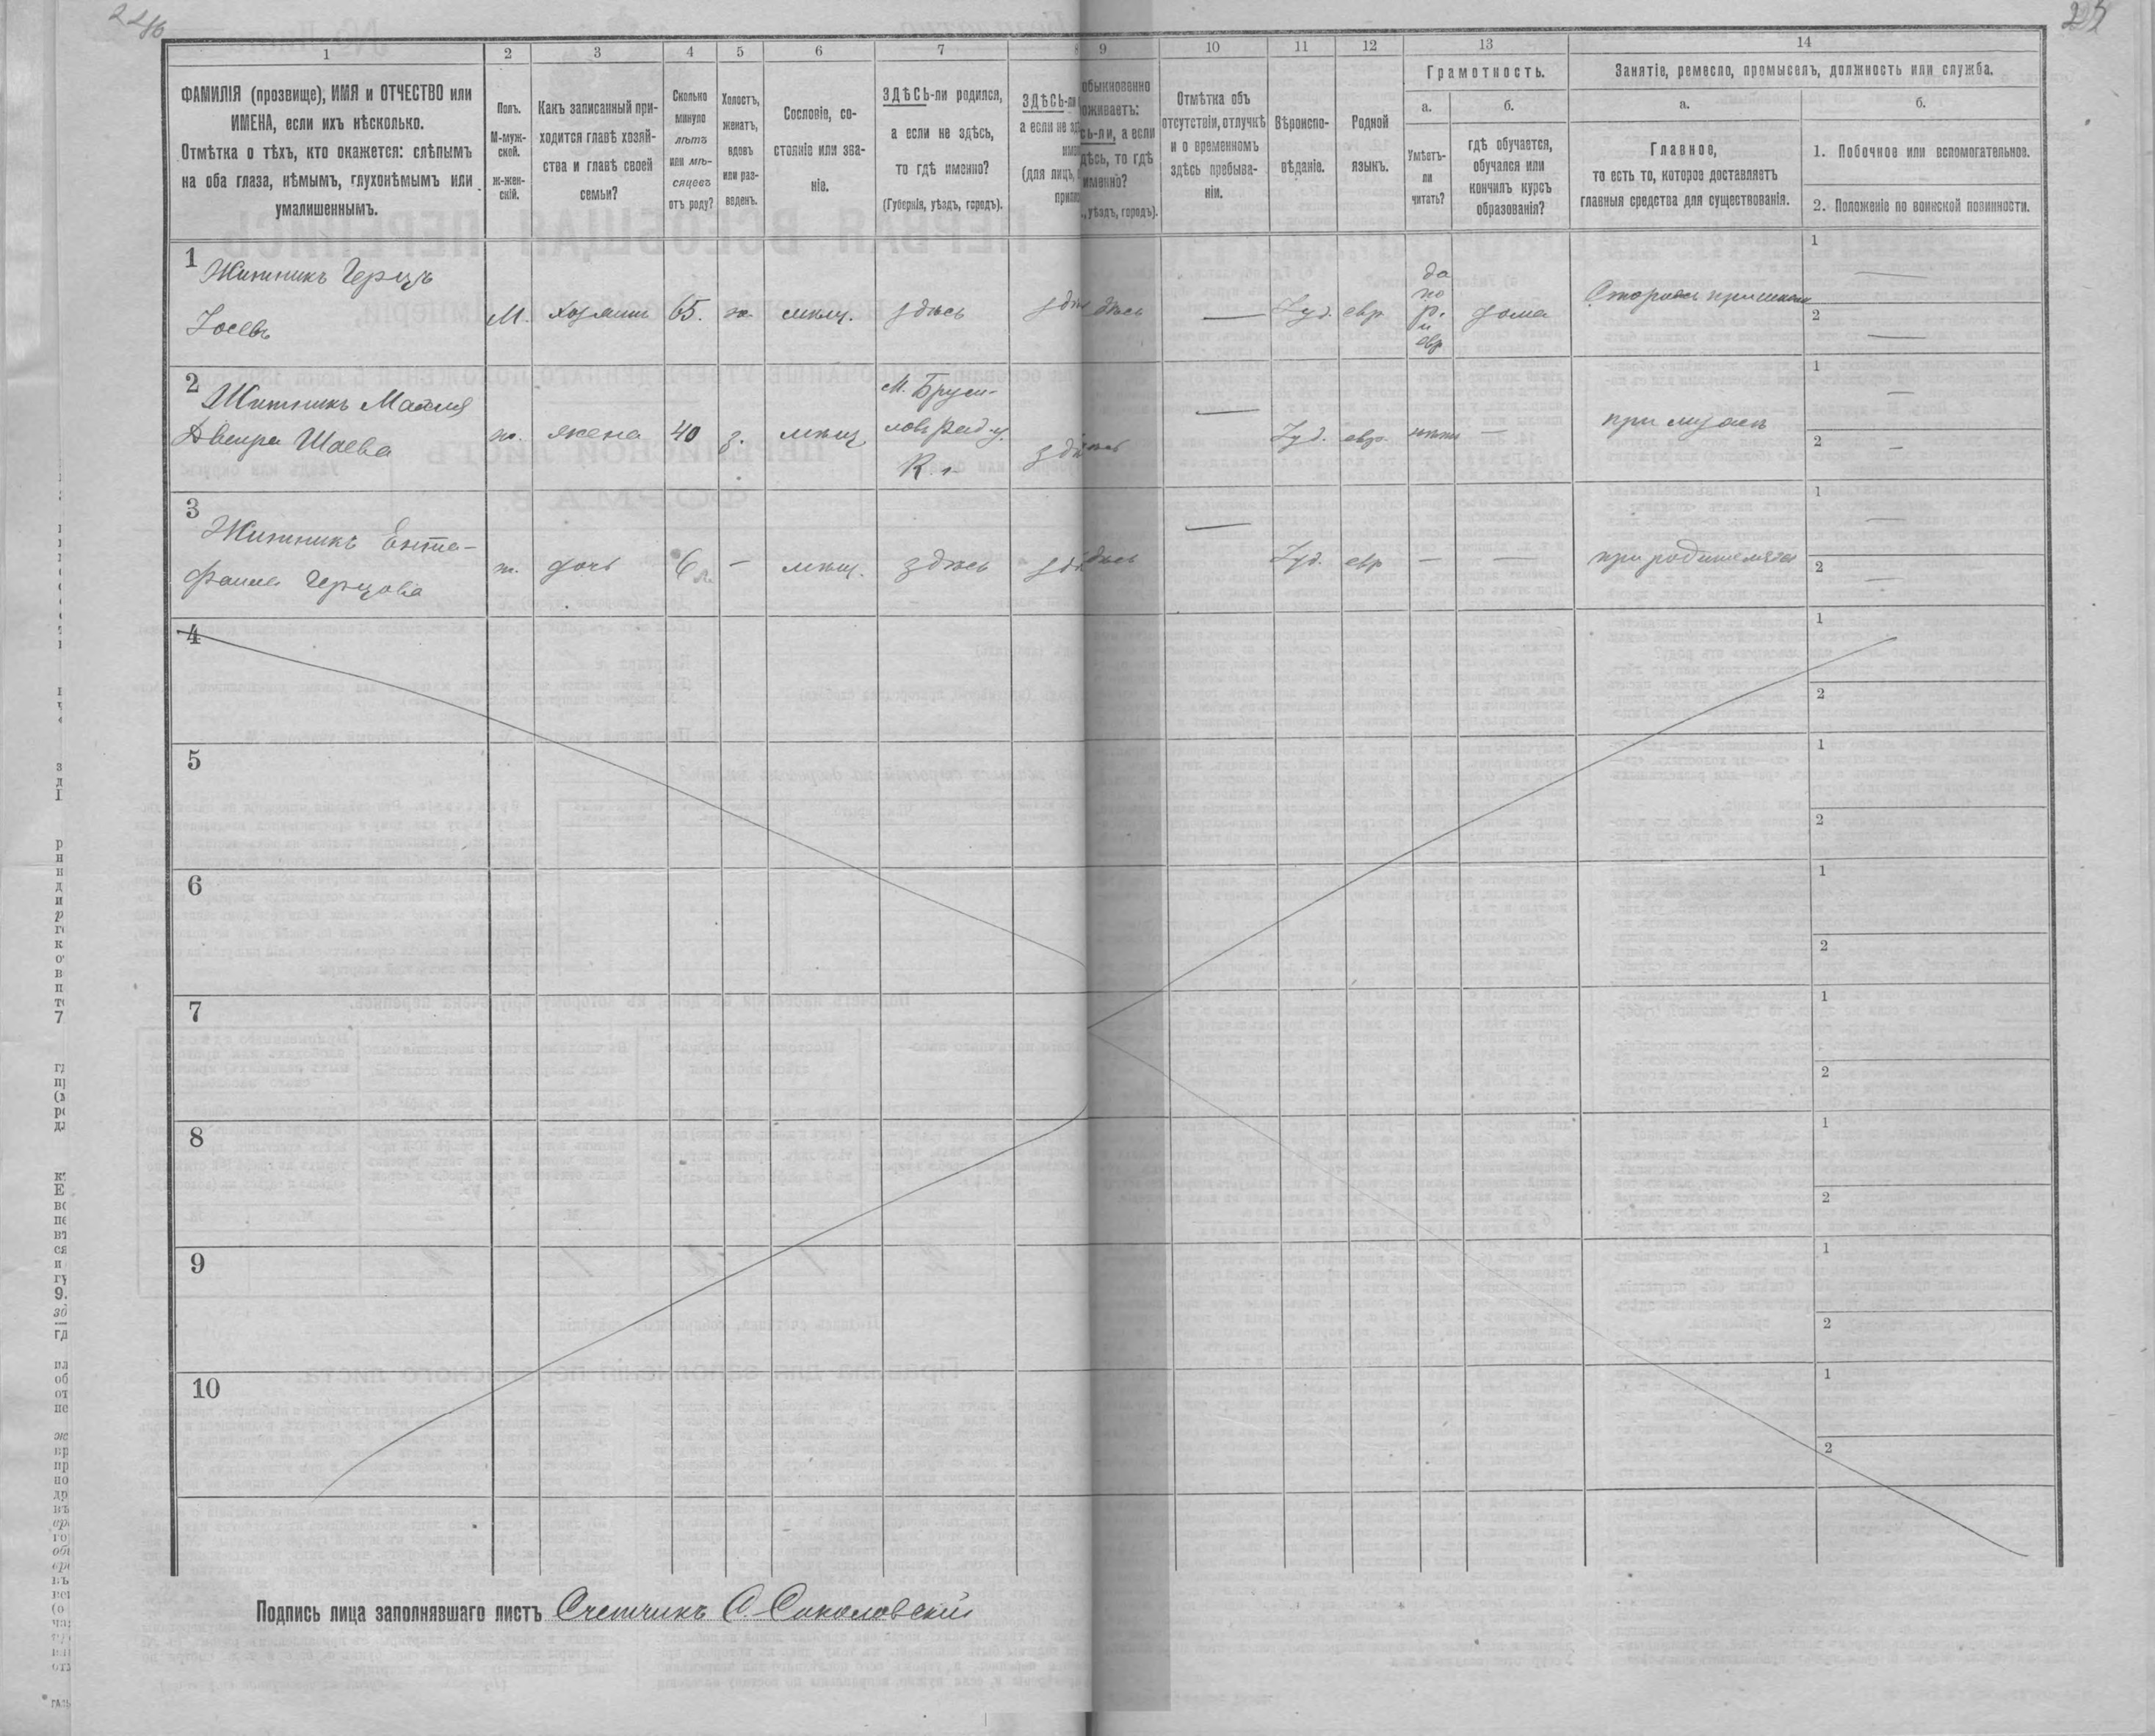 1
2
3
4
5
6
7
8
9
10
11
12
13
14
ФАМИЛІЯ (прозвище), ИМЯ и ОТЧЕСТВО или
ИМЕНА, если ихъ нѣсколько.
Отмѣтка о тѣхъ, кто окажется: слѣпымъ
на оба глаза, нѣмымъ, глухонѣмымъ или
умалишеннымъ.
Полъ.
М-муж-
ской.
Ж-жен-
скій.
Какъ записанный при-
ходится главѣ хозяй-
ства и главѣ своей
семьи?
Сколько
минуло
лѣтъ
или мѣ-
сяцевъ
отъ роду?
Холостъ,
женатъ,
вдовъ
или раз-
веденъ.
Сословіе, со-
стояніе или зва-
ніе.
ЗДѢСЬ-ли родился,
а если не здѣсь,
то гдѣ именно?
(Губернія, уѣздъ, городъ).
ЗДѢСЬ-ли
а если не
(для лицъ,
обыкновенно
а если
то гдѣ
именно?
уѣздъ, городъ).
Отмѣтка объ
отсутствіи, отлучкѣ
и о временномъ
здѣсь пребыва-
ніи.
Вѣроиспо-
вѣданіе.
Родной
языкъ.
Грамотность.
а.
Умѣетъ-
ли
читать?
б.
гдѣ обучается,
обучался или
кончилъ курсъ
образованія?
Занятіе, ремесло, промыселъ, должность или служба.
а.
Главное,
то есть то, которое доставляетъ
главныя средства для существованія.
б.
1. Побочное или вспомогательное.
2. Положеніе по воинской повинности.
1 Житникъ Герцъ
Іосевъ
М. хозяинъ 65. ж. мѣщ. здѣсь — Іуд. евр. да по р. и евр дома
1
2
2 Житникъ
Двейра Шаева
ж. жена 40 з. мѣщ.
М. Бруси-
ловъ Рад. у.
К. г.
здѣсь — Іуд. евр. — при мужѣ
1
2
3 Житникъ Ента-
Герцова
ж. дочь 6 л. — мѣщ. здѣсь — Іуд. евр — — при родителяхъ
1
2
4
1
2
5
1
2
6
1
2
7
1
2
8
1
2
9
1
2
10
1
2
Подпись лица заполнявшаго листъ Счетчикъ С. Соколовскій